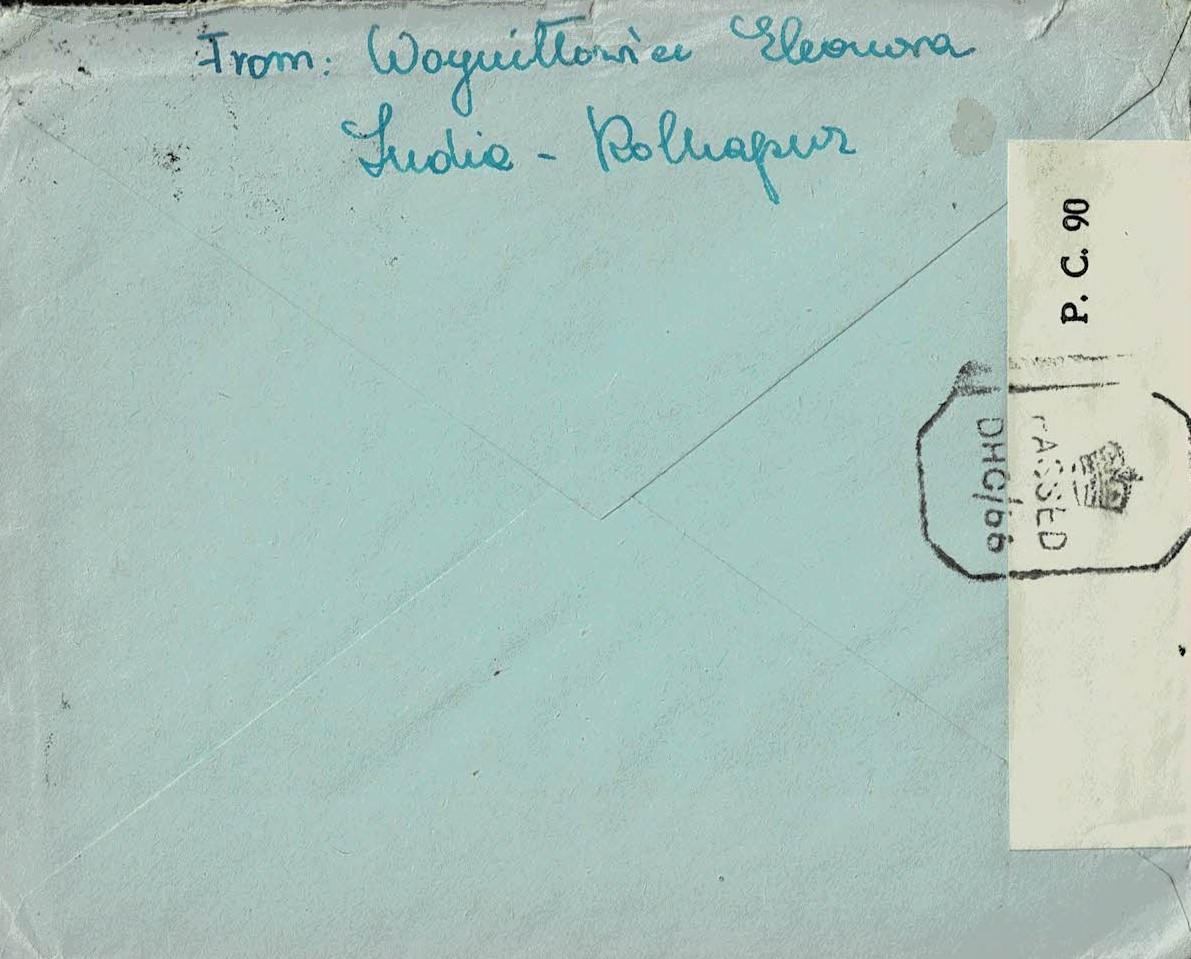 From: Woynittowicz Eleonora
India - Kolhapur
P. C. 90
PASSED
DHC/66